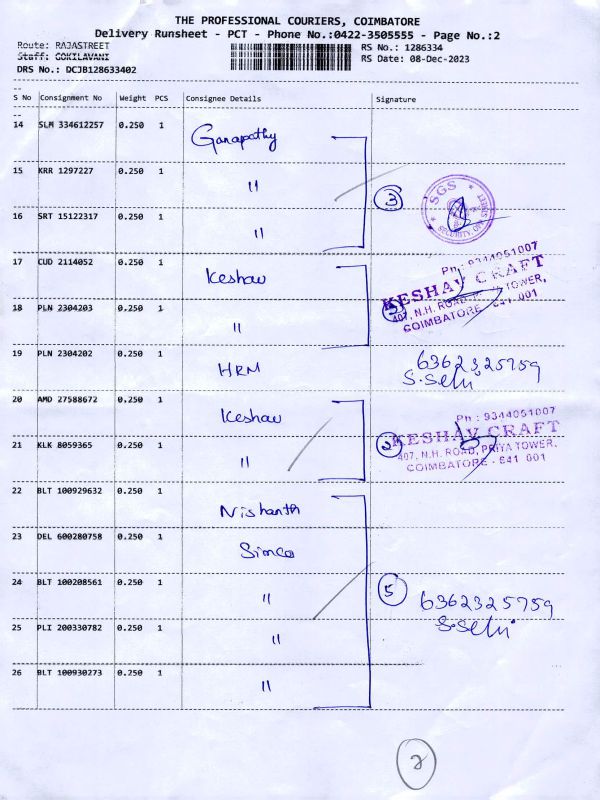 THE PROFESSIONAL COURIERS, COIMBATORE
Delivery Runsheet - PCT - Phone No.:0422-3505555 - Page No.:2
Route: RAJASTREET
RS No.: 1286334
Staff: GOKILAVANI
RS Date: 08-Dec-2023
DRS No.: DCJB128633402
S No Consignment No Weight PCS Consignee Details Signature
14 SLM 334612257 0.250 1 Ganapathy
15 KRR 1297227 0.250 1 "
3
SGS
16 SRT 15122317 0.250 1 "
17 CUD 2114052 0.250 1 Keshav
Ph : 9344051007
KESHAV CRAFT
407, N.H. ROAD, TOWER,
COIMBATORE - 641 001
18 PLN 2304203 0.250 1 "
19 PLN 2304202 0.250 1 HRM
6362325759
S.Selvi
20 AMD 27588672 0.250 1 Keshav
Ph : 9344051007
2 KESHAV CRAFT
407, N.H. ROAD, PRIYA TOWER,
COIMBATORE - 641 001
21 KLK 8059365 0.250 1 "
22 BLT 100929632 0.250 1 Nishanth
23 DEL 600280758 0.250 1 Simco
24 BLT 100208561 0.250 1 "
5 6362325759
S.Selvi
25 PLI 200330782 0.250 1 "
26 BLT 100930273 0.250 1 "
2